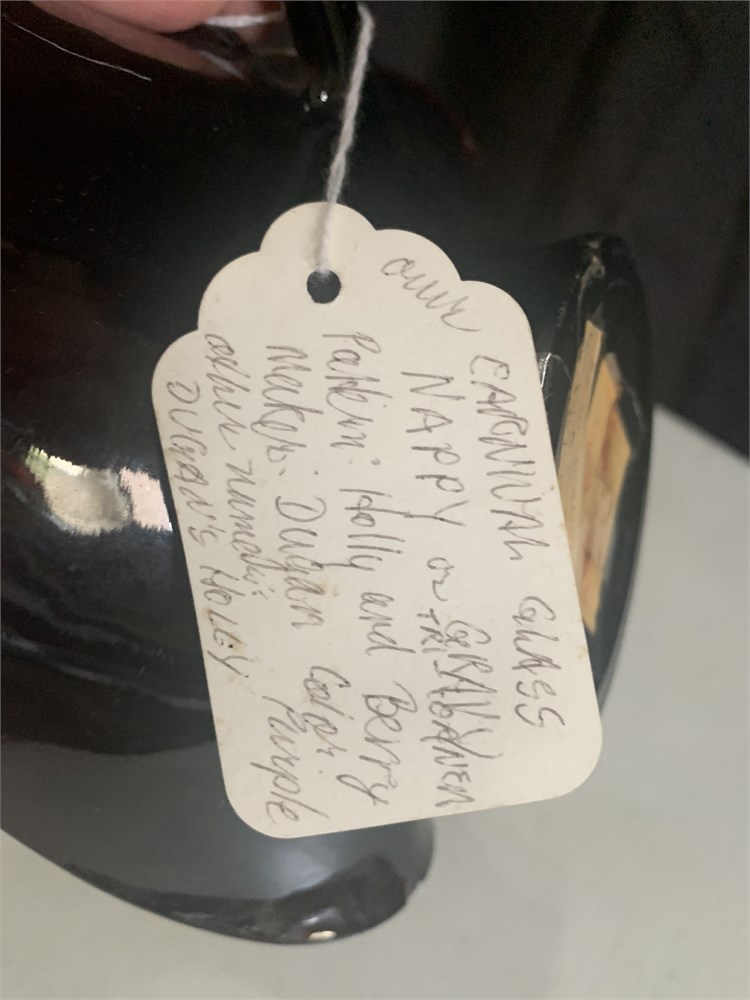 our
CARNIVAL GLASS
NAPPY or GRAVY
TRI
Pattern: Holly and Berry
Maker: Dugan Color: Purple
other names:
DUGAN'S HOLLY